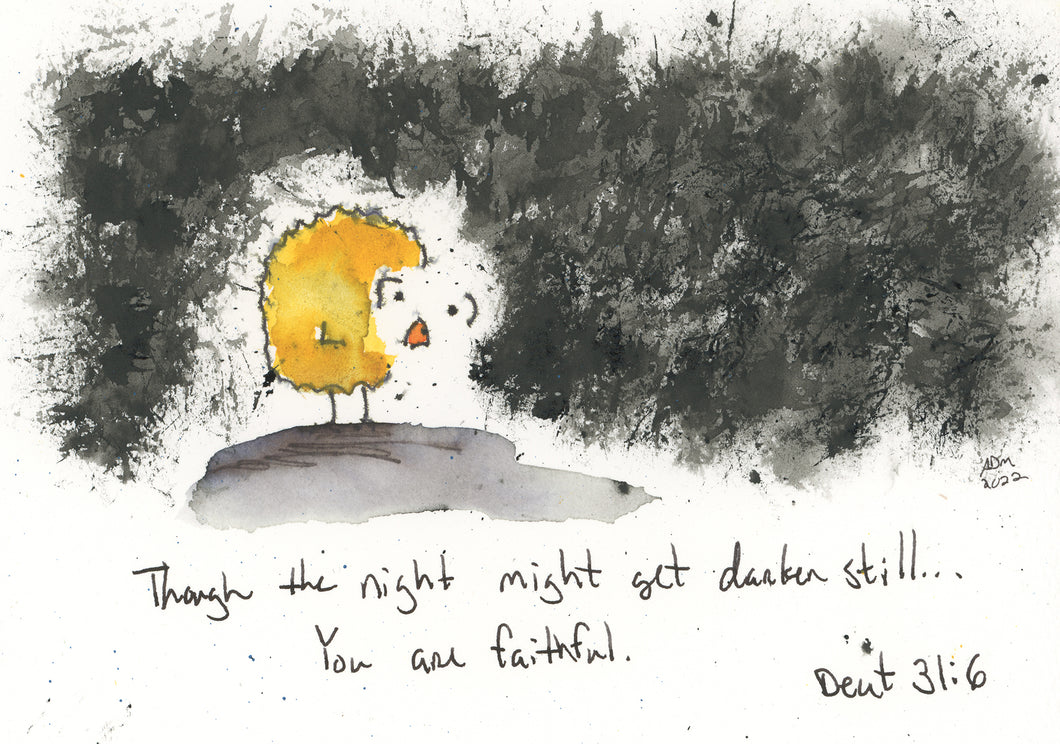 ADM
2022
Though the night might get darker still...
You are faithful.
Deut 31:6